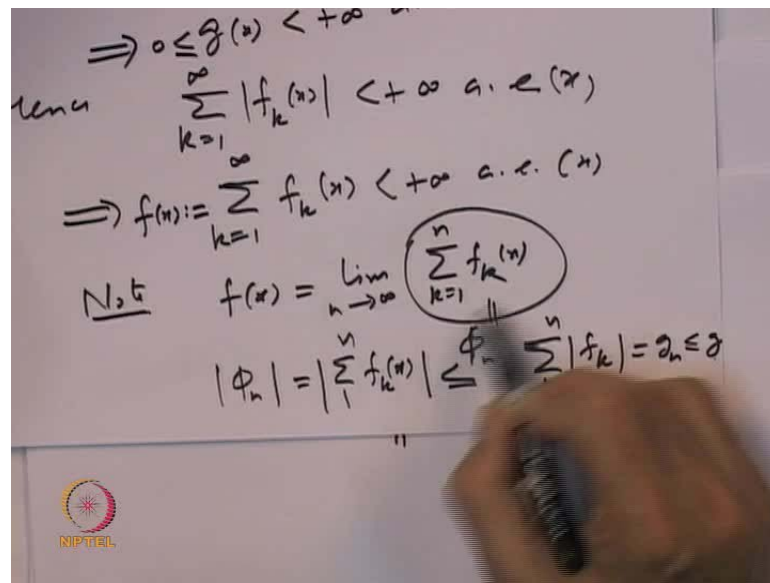 ⟹ 0 ≤ g(x) < +∞ a.
∞ ∑ k=1 |f_k(x)| < +∞ a.e(x)
⟹ f(x) := ∞ ∑ k=1 f_k(x) < +∞ a.e.(x)
Note f(x) = lim n→∞ n ∑ k=1 f_k(x)
||
ϕ_n
|ϕ_n| = |n ∑ 1 f_k(x)| ≤ n ∑ |f_k| = g_n ≤ g
"
NPTEL